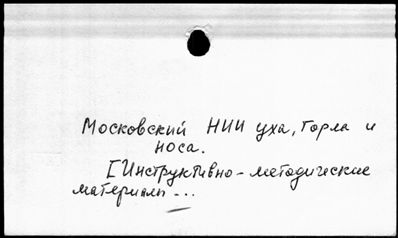 Московский НИИ уха, горла и
носа.
[Инструктивно-методические
материалы...